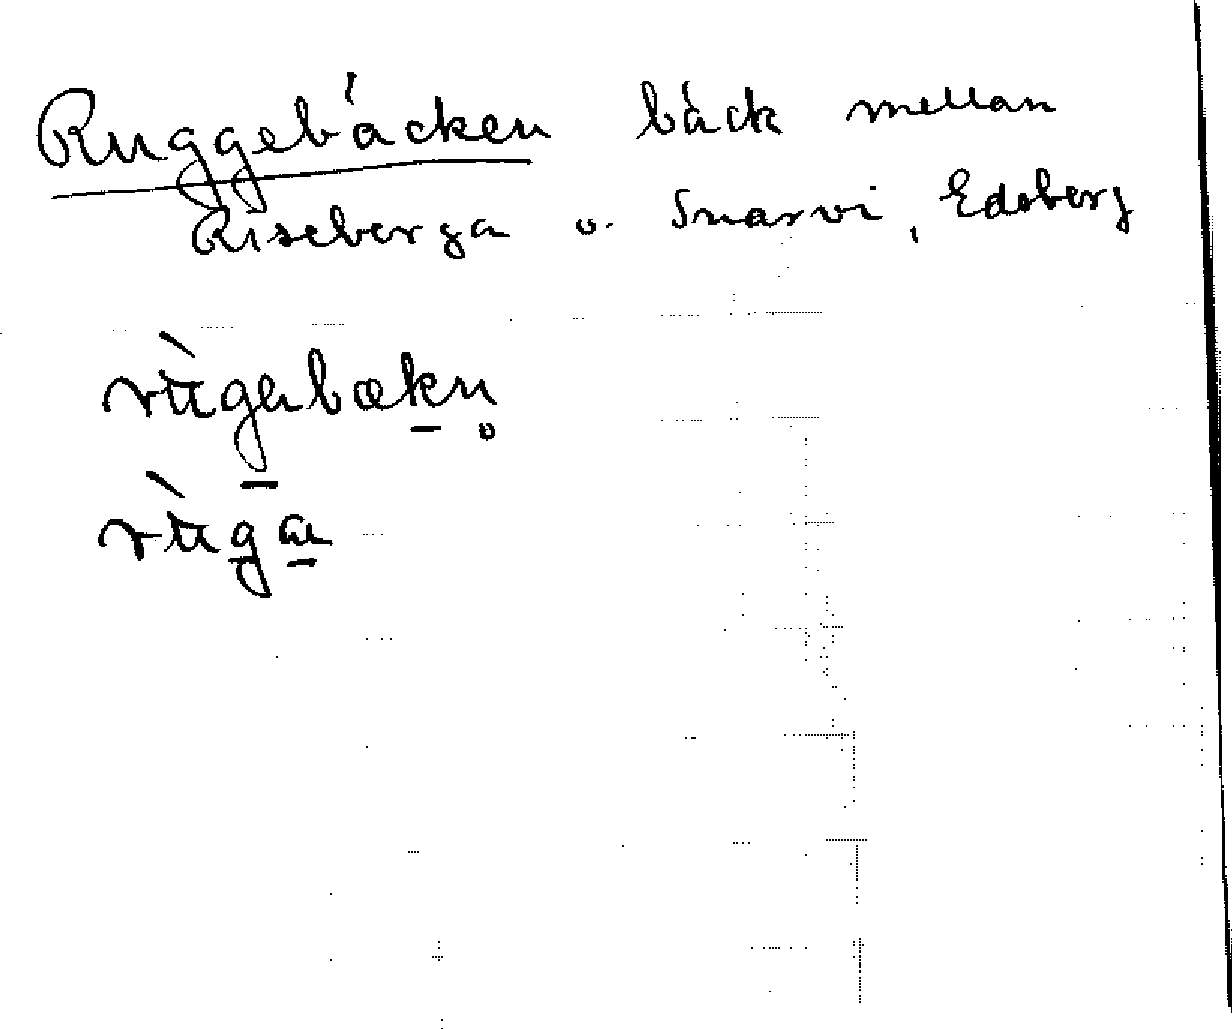 Ruggebäcken bäck mellan
Riseberga o. Snarvi, Edsberg
rùgabækn̥
rùga